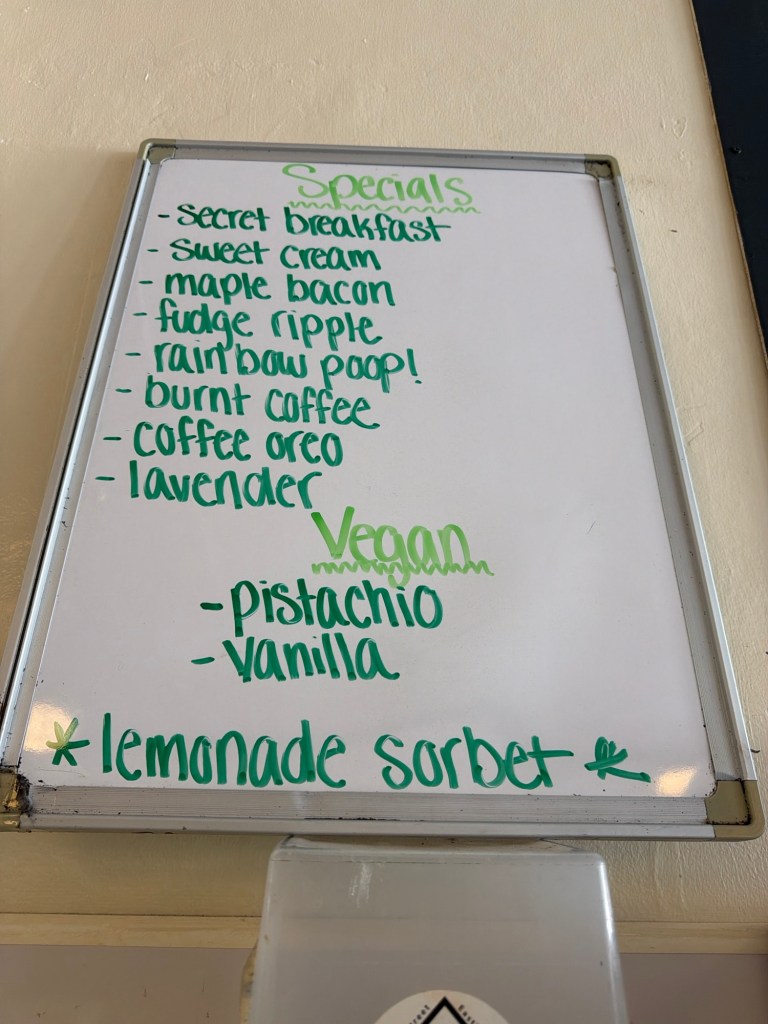 Specials
- secret breakfast
- sweet cream
- maple bacon
- fudge ripple
- rainbow poop!
- burnt coffee
- coffee oreo
- lavender
Vegan
- pistachio
- vanilla
* lemonade sorbet *